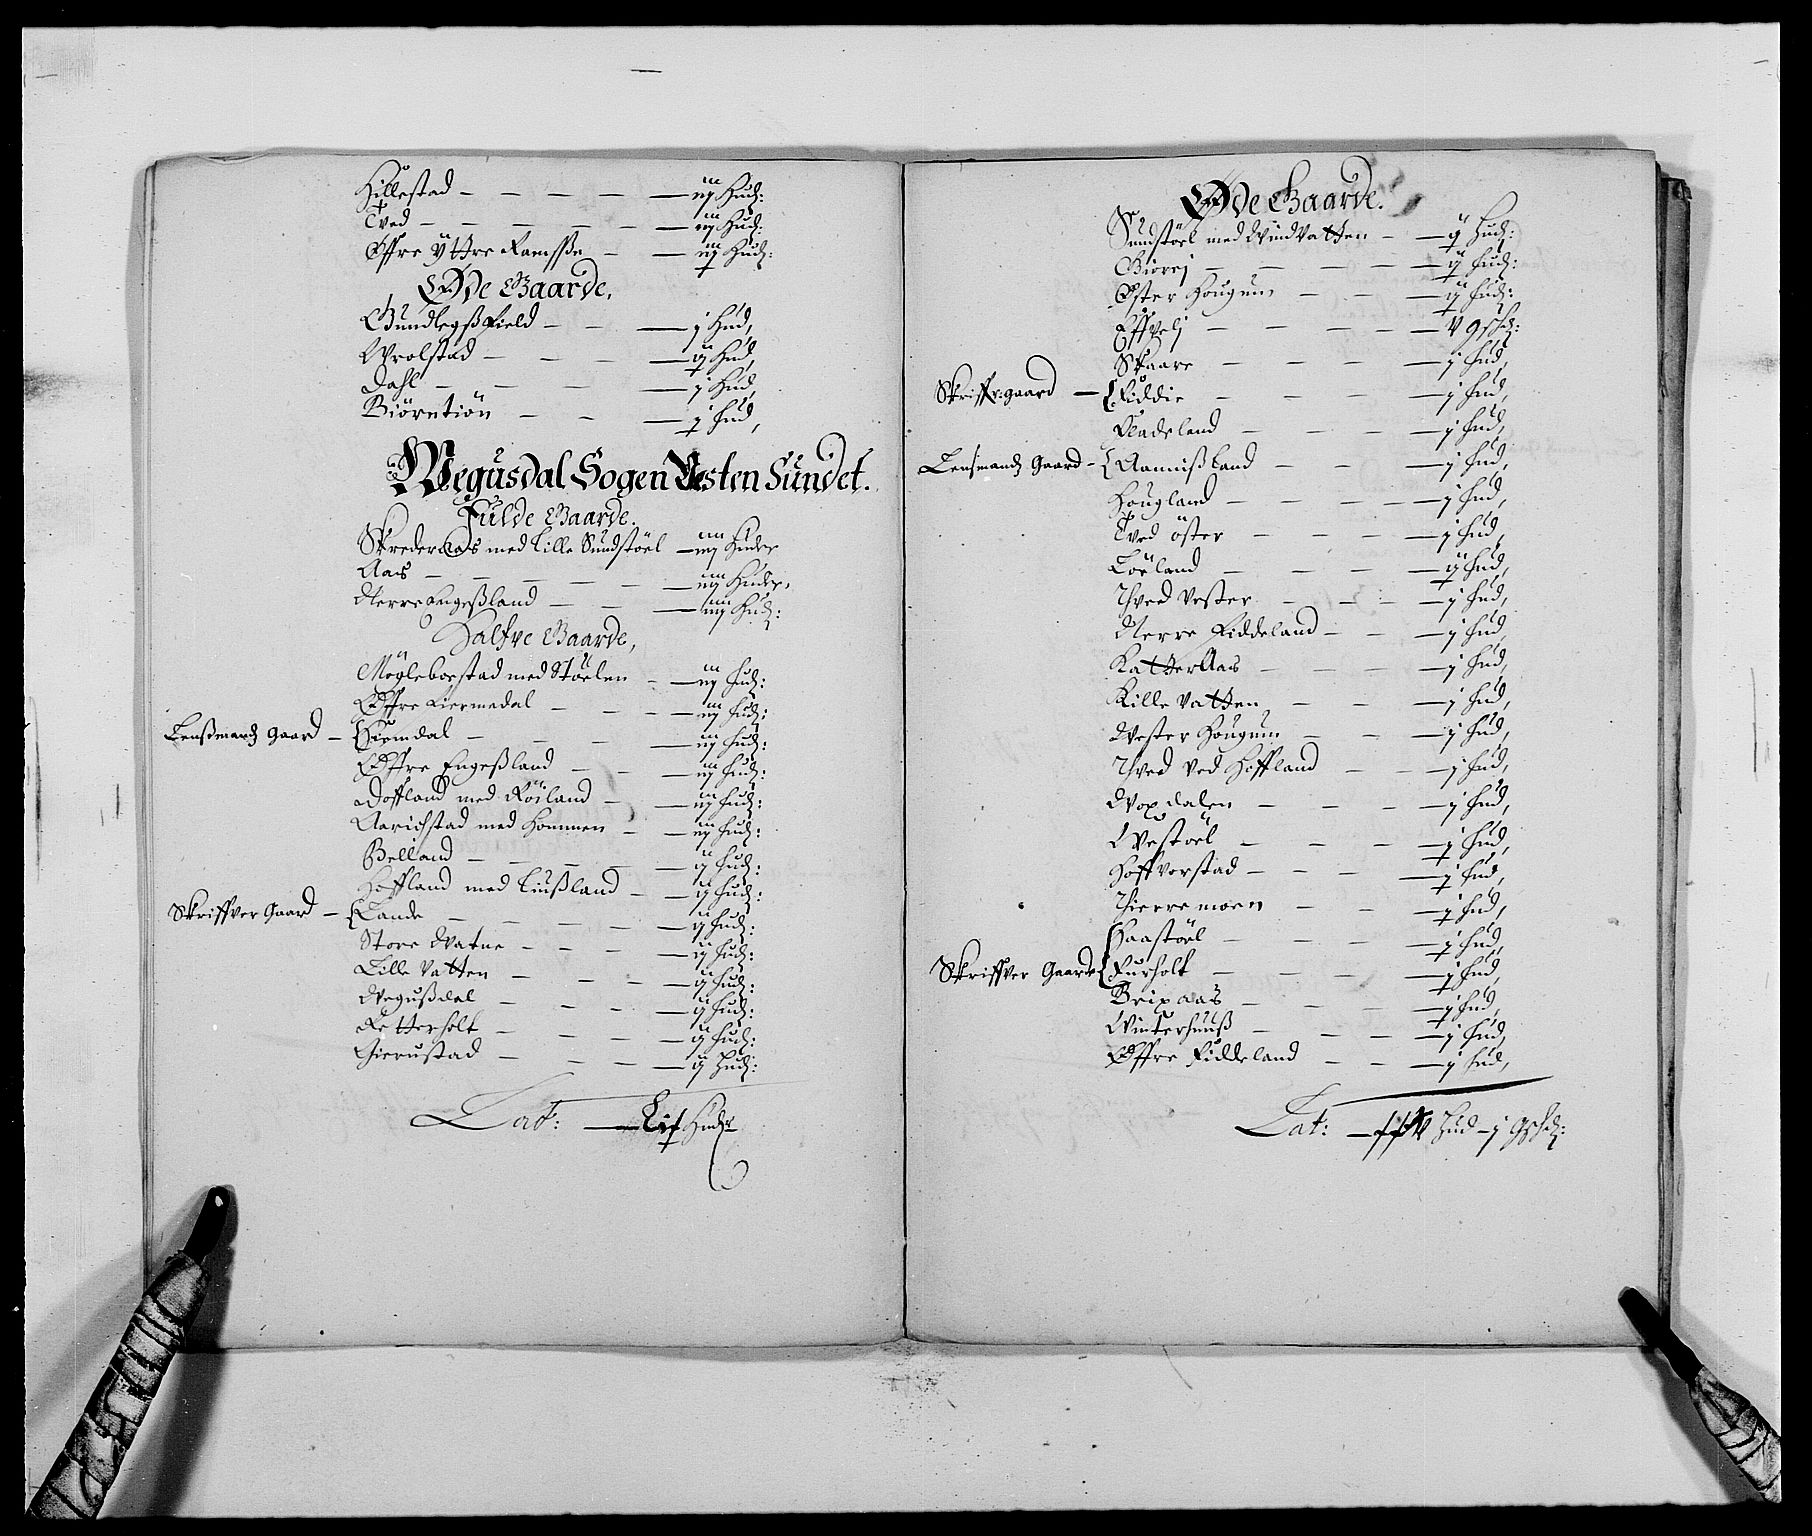 Hillestad — — — — iij Hud:
Tved — — — — — iij Hud:
Øffre Yttre Ramsse — — iij Hud:
Øde Gaarde,
Gundlegsfield — — — j Hud,
Wrolstad — — — ij Hud,
Dahl — — — — j Hud,
Biörntiön — — — j hud,
Wegusdal Sogen Vesten Sündet.
Fulde Gaarde.
Skrederaas med Lille Sundstöel — iiij Huder
Aas — — — — — iiij Huder,
Nerre Engeßland — — — iiij Hud:
Halfve Gaarde,
Mögleboestad med Stöelen — iij hud:
Øffre Liermedal — — — iij hud:
Lensmandz Gaard — { Hiemdal — — — iij hud:
Øffre Engeßland — — iij hud:
Doffland med Röiland — iij hud:
Aarichstad med Hommen — iij hud:
Belland — — — — ij hud:
Hoffland med Liußland — ij hud:
Skriffver Gaard — { Lande — — — — ij hud:
Store Watne — — — ij hud:
Lille Vatten — — — ij hud:
Wegußdal — — — ij hud:
Retterholt — — — ij hud:
Gierustad — — — ij Hud:
Lat: — Huder
Øde Gaarde.
Sundstöel med Windvatten — ij Hud:
Biorej — — — — ij hud:
Øster Hougum — — ij hud:
— — — — V Gschd:
Skaare — — — j hud,
Skriffr: gaard — { Fiddie — — — j hud,
Fladeland — — — j hud,
Lensmandz Gaard — { Aannißland — — j hud,
Hougland — — — j hud,
Tved öster — — — j hud,
Löeland — — — ij hud,
Thved Vester — — — j hud,
Nerre Fiddeland — — j hud,
Katteraas — — — j hud,
Kille Vatten — — j hud,
Wester Hougum — — j hud,
Thved Ved Hoffland — — j hud,
Woxdalen — — — j hud,
Westöel — — — j hud,
Hoffvorstad — — — j hud,
Thierremoen — — j hud,
Haastöel — — — j hud,
Skriffver Gaarde { Furholt — — — j hud,
Brixaas — — — j hud,
Winterhuuß — — — j hud,
Øffre Fiddeland — — j hud,
Lat: — Hud — j Gschd: